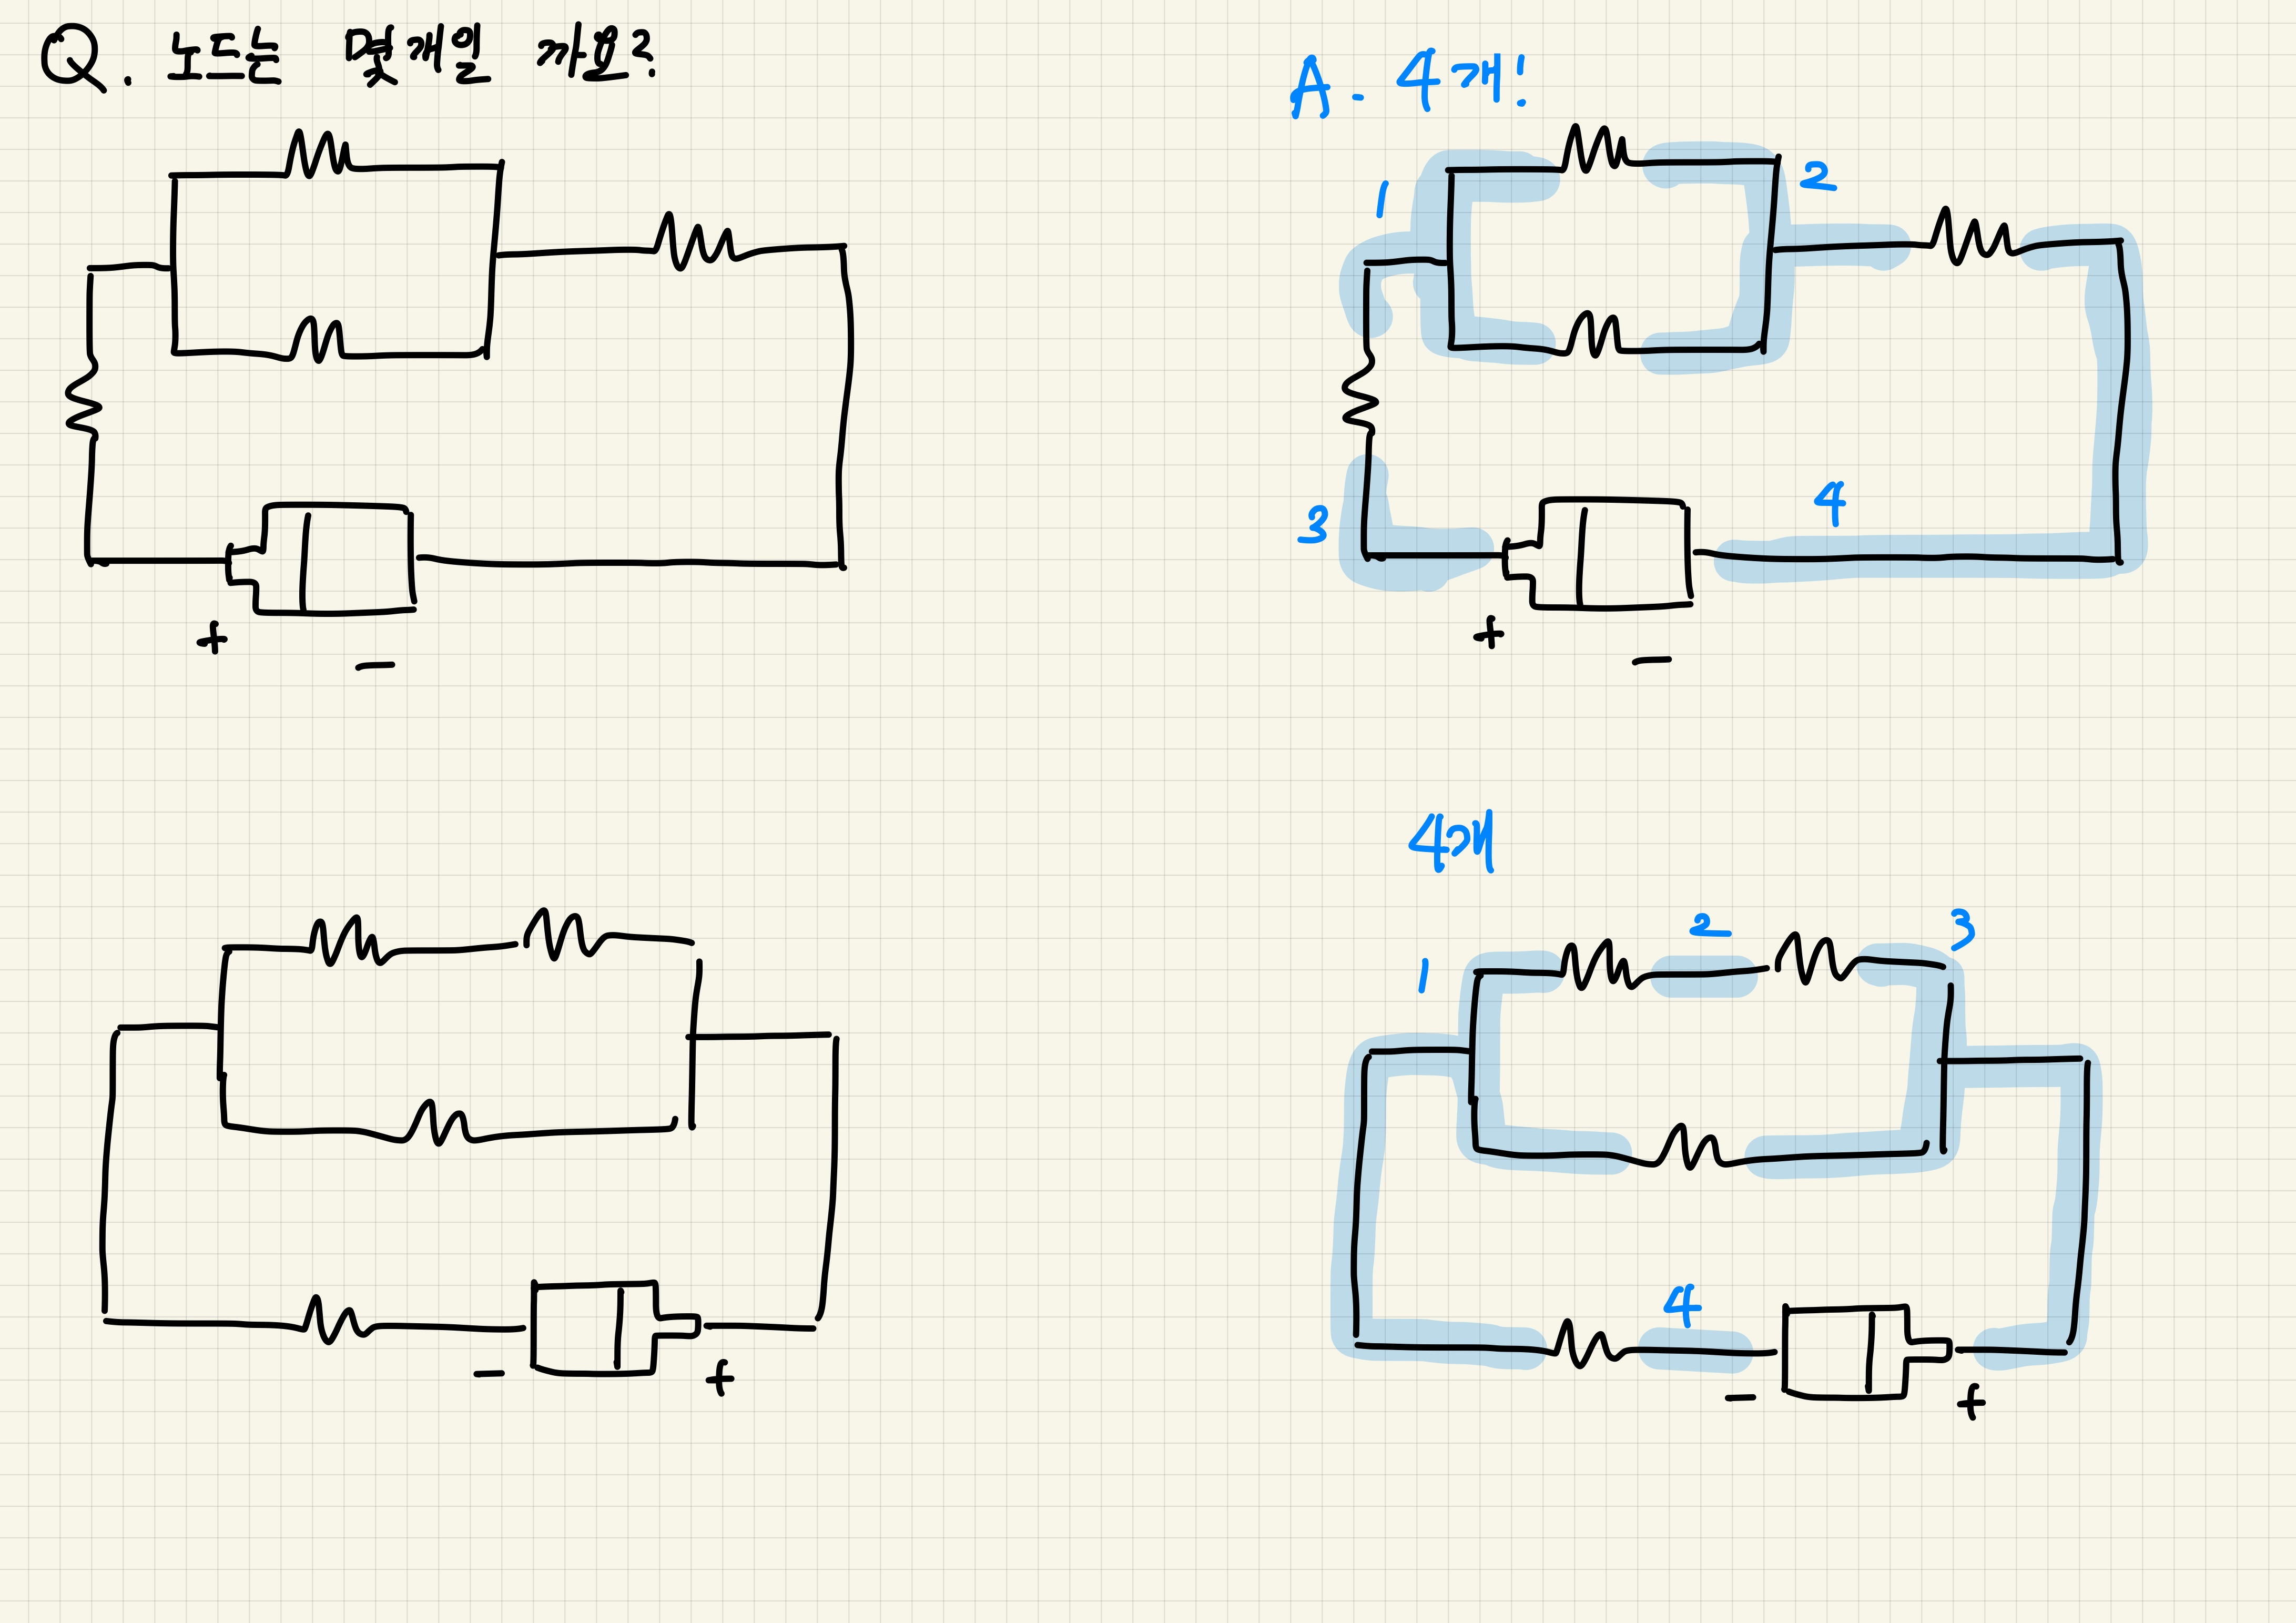 Q. 노드는 몇개일 까요?
A. 4개!
1
2
3
4
+
−
+
−
4개
1
2
3
4
−
+
−
+